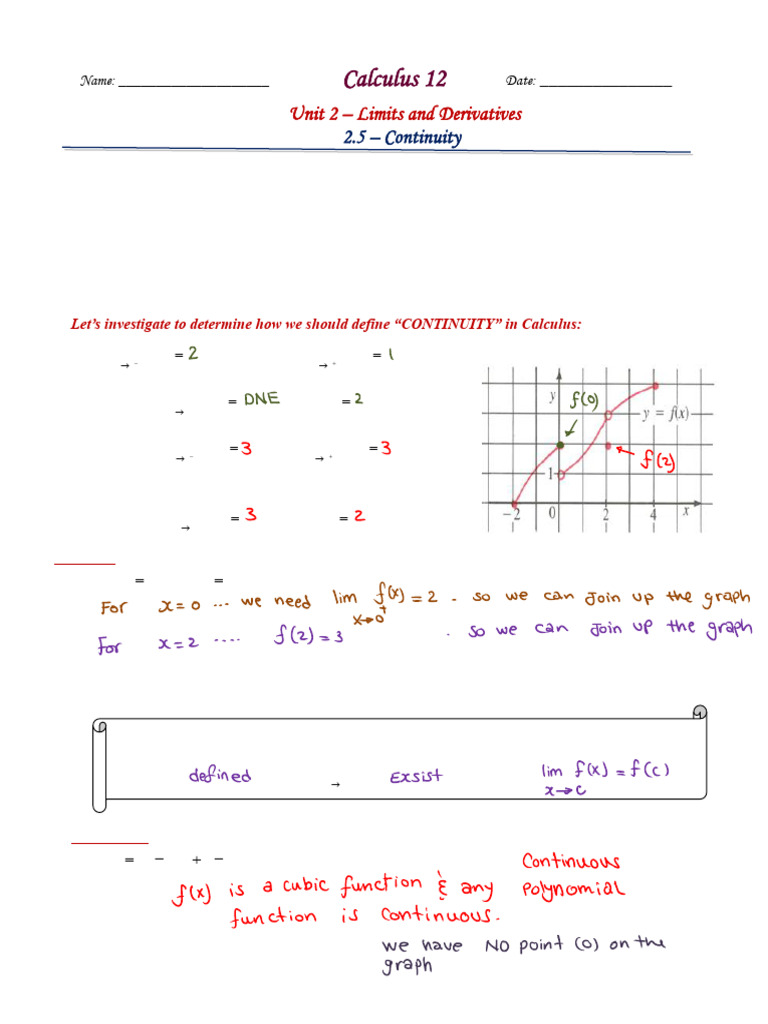 Name: ____________________ Calculus 12 Date: ________________
Unit 2 – Limits and Derivatives
2.5 – Continuity
Let's investigate to determine how we should define “CONTINUITY” in Calculus:
→ ⁻ = 2 → ⁺ = 1
→ = DNE = 2
→ ⁻ = 3 → ⁺ = 3
→ = 3 = 2
y f(0) y = f(x)
f(2)
1
-2 0 2 4 x
= =
For x = 0 ... we need lim f(x) = 2 . so we can Join up the graph
x→0⁺
For x = 2 .... f(2) = 3 . so we can Join up the graph
defined → Exsist lim f(x) = f(c)
x→c
= − + − Continuous
f(x) is a cubic function & any polynomial
function is continuous.
we have NO point (o) on the
graph